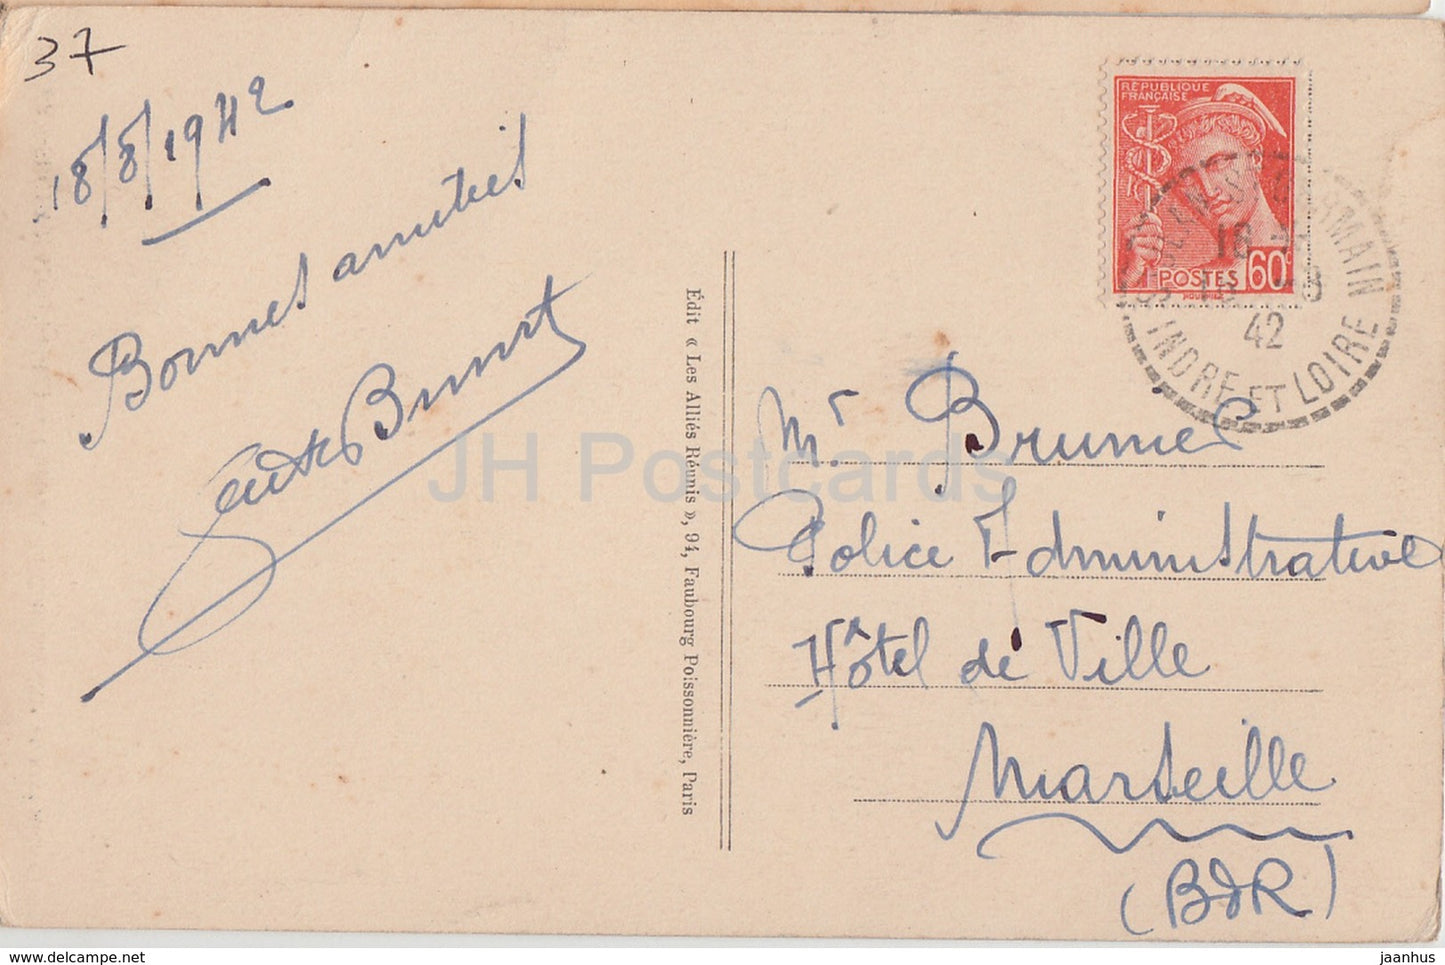 37
18/8/1942
Bonnes amitiés
Édit « Les Alliés Réunis », 94, Faubourg Poissonnière, Paris
RÉPUBLIQUE
FRANÇAISE
POSTES 60c
ST GERMAIN
16
42
INDRE ET LOIRE
Mr Brunel
Police Administrative
Hôtel de Ville
Marseille
(BdR)
JH Postcards
www.delcampe.net
jaanhus